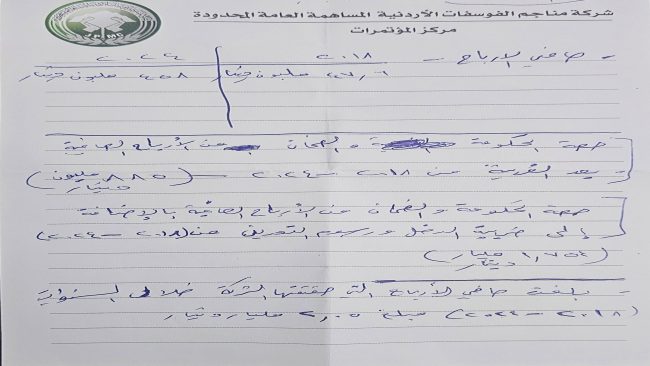 شركة مناجم الفوسفات الأردنية المساهمة العامة المحدودة
مركز المؤتمرات
- صافي الأرباح - ٢٠١٨ ٢٠٢٤
٤٧,٦ مليون دينار ٤٥٨ مليون دينار
حصة الحكومة والضمان من الأرباح الصافية
بعد الضريبة من ٢٠١٨ - ٢٠٢٤ - (٨٨٥ مليون دينار)
حصة الحكومة والضمان من الأرباح الصافية بالإضافة
إلى ضريبة الدخل ورسوم التعدين من (٢٠١٨ - ٢٠٢٤)
(١,٧٥٤ مليار دينار)
- بلغت صافي الأرباح التي حققتها الشركة خلال السنوات
(٢٠١٨ - ٢٠٢٤) مبلغ ٢,٠٥ مليار دينار